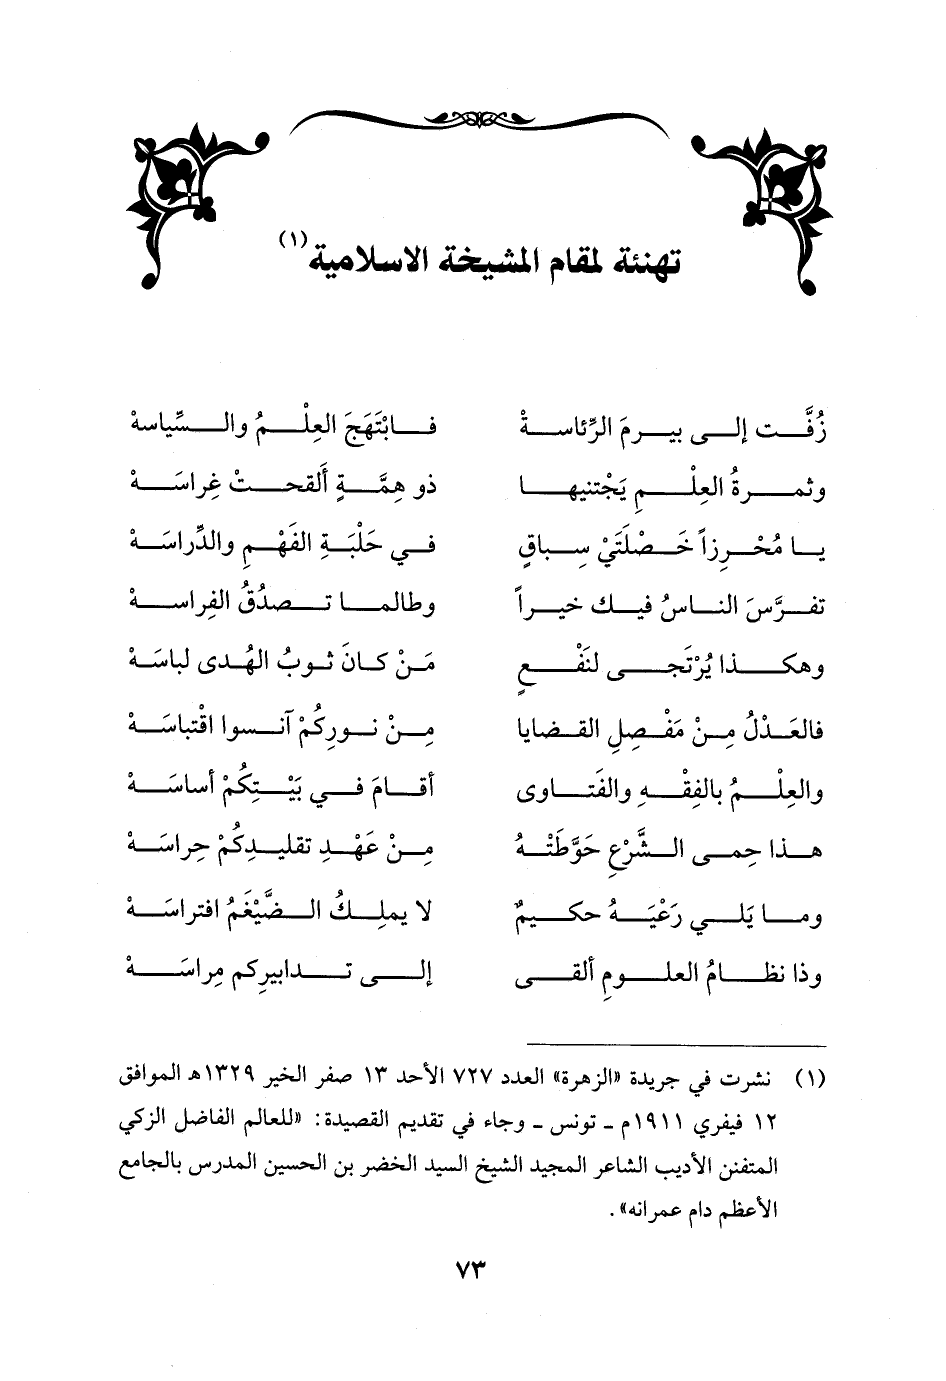 تهنئة لمقام المشيخة الاسلامية(١)
زُفَّت إلى بيرمَ الرِّئاسةْ فابْتَهَجَ العِلْمُ والسِّياسهْ
وثمرةُ العِلْمِ يَجْتنيها ذو هِمَّةٍ أَلقحتْ غِراسَهْ
يا مُحْرِزاً خَصْلَتَيْ سِباقٍ في حَلْبَةِ الفَهْمِ والدِّراسَهْ
تفرَّسَ الناسُ فيك خيراً وطالما تصدُقُ الفِراسهْ
وهكذا يُرْتَجى لنَفْعٍ مَنْ كانَ ثوبُ الهُدى لباسَهْ
فالعَدْلُ مِنْ مَفْصِلِ القضايا مِنْ نورِكُمْ آنسوا اقْتباسَهْ
والعِلْمُ بالفِقْهِ والفَتاوى أقامَ في بَيْتِكُمْ أساسَهْ
هذا حِمى الشَّرْعِ حَوَّطَتْهُ مِنْ عَهْدِ تقليدِكُمْ حِراسَهْ
وما يَلي رَعْيَهُ حكيمٌ لا يملِكُ الضَّيْغَمُ افتراسَهْ
وذا نظامُ العلومِ ألقى إلى تدابيرِكم مِراسَهْ
(١) نشرت في جريدة «الزهرة» العدد ٧٢٧ الأحد ١٣ صفر الخير ١٣٢٩هـ الموافق
١٢ فيفري ١٩١١م ـ تونس ـ وجاء في تقديم القصيدة: «للعالم الفاضل الزكي
المتفنن الأديب الشاعر المجيد الشيخ السيد الخضر بن الحسين المدرس بالجامع
الأعظم دام عمرانه».
٧٣